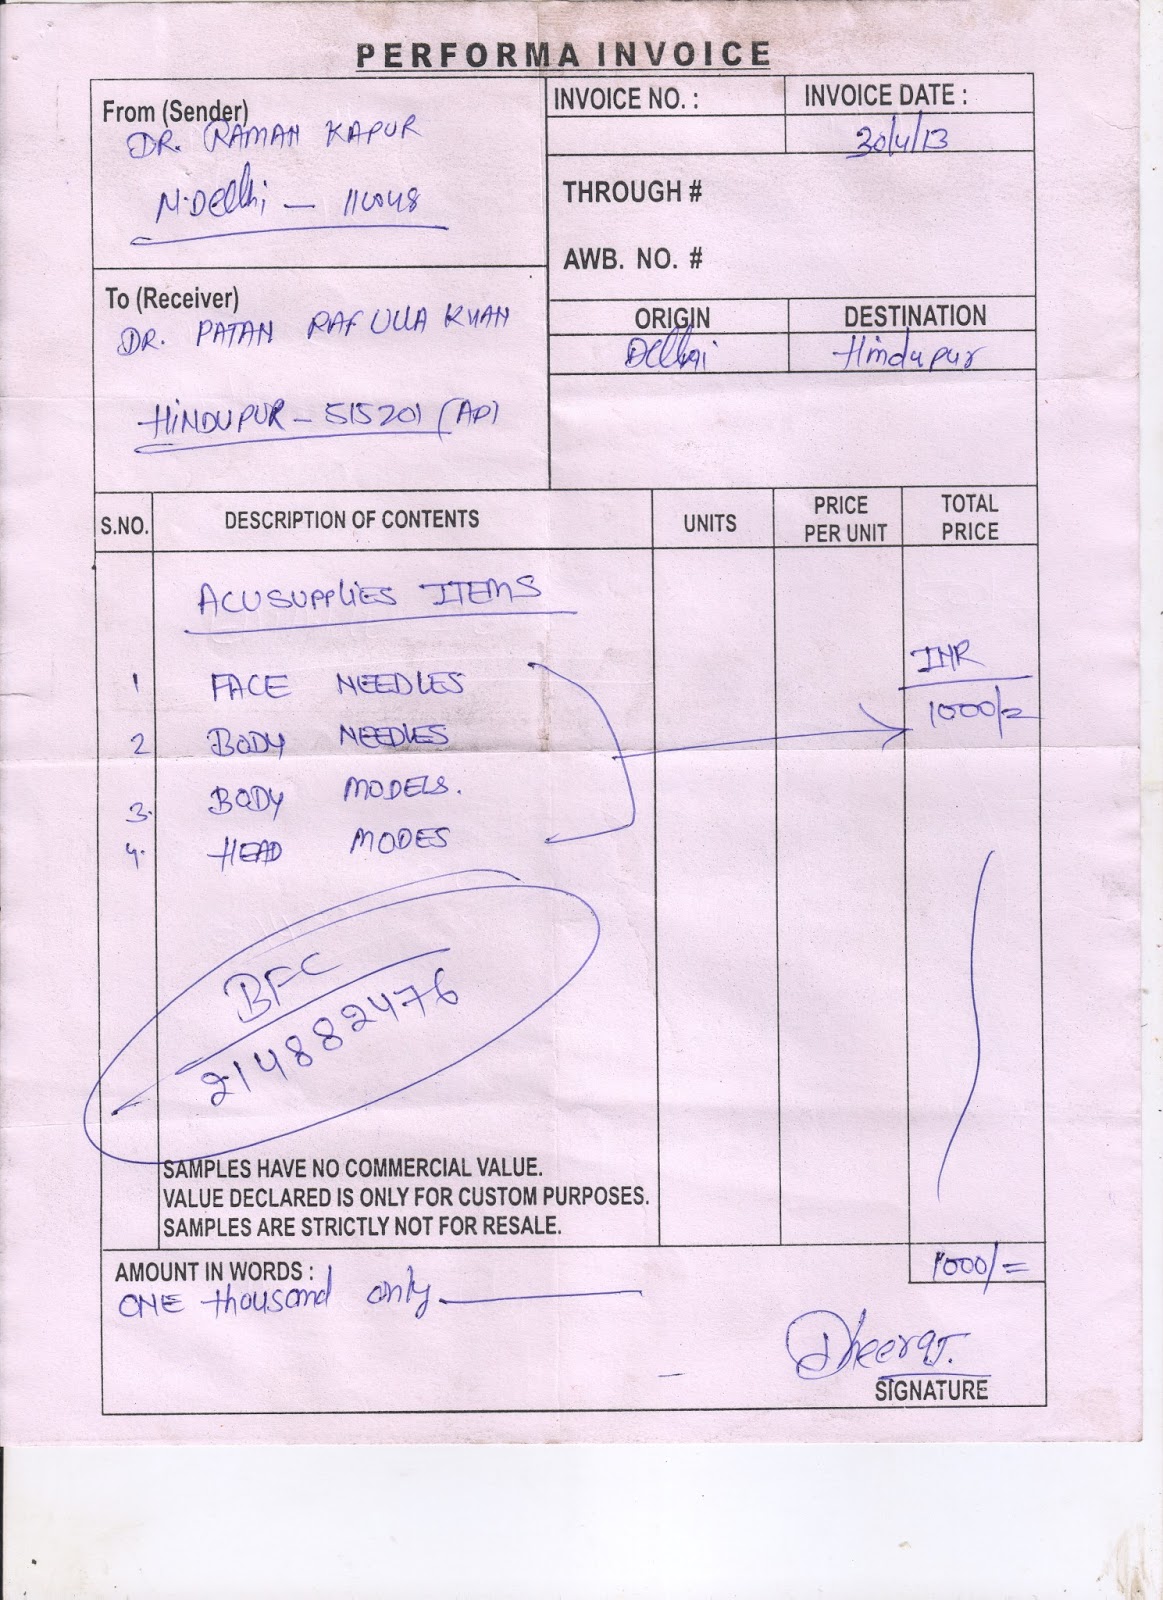 PERFORMA INVOICE
From (Sender)
DR. RAMAN KAPUR
N.Delhi – 110048
INVOICE NO. :
INVOICE DATE :
30/4/13
THROUGH #
AWB. NO. #
To (Receiver)
DR. PATAN RAFULLA KHAN
HINDUPUR – 515201 (AP)
ORIGIN
DESTINATION
Delhi
Hindupur
S.NO.
DESCRIPTION OF CONTENTS
UNITS
PRICE
PER UNIT
TOTAL
PRICE
ACUSUPPLIES ITEMS
1 FACE NEEDLES
2 BODY NEEDLES
3. BODY MODELS.
4. HEAD MODES
INR
1000/=
BFC
214882476
SAMPLES HAVE NO COMMERCIAL VALUE.
VALUE DECLARED IS ONLY FOR CUSTOM PURPOSES.
SAMPLES ARE STRICTLY NOT FOR RESALE.
1000/=
AMOUNT IN WORDS :
ONE thousand only
Dheeraj.
SIGNATURE